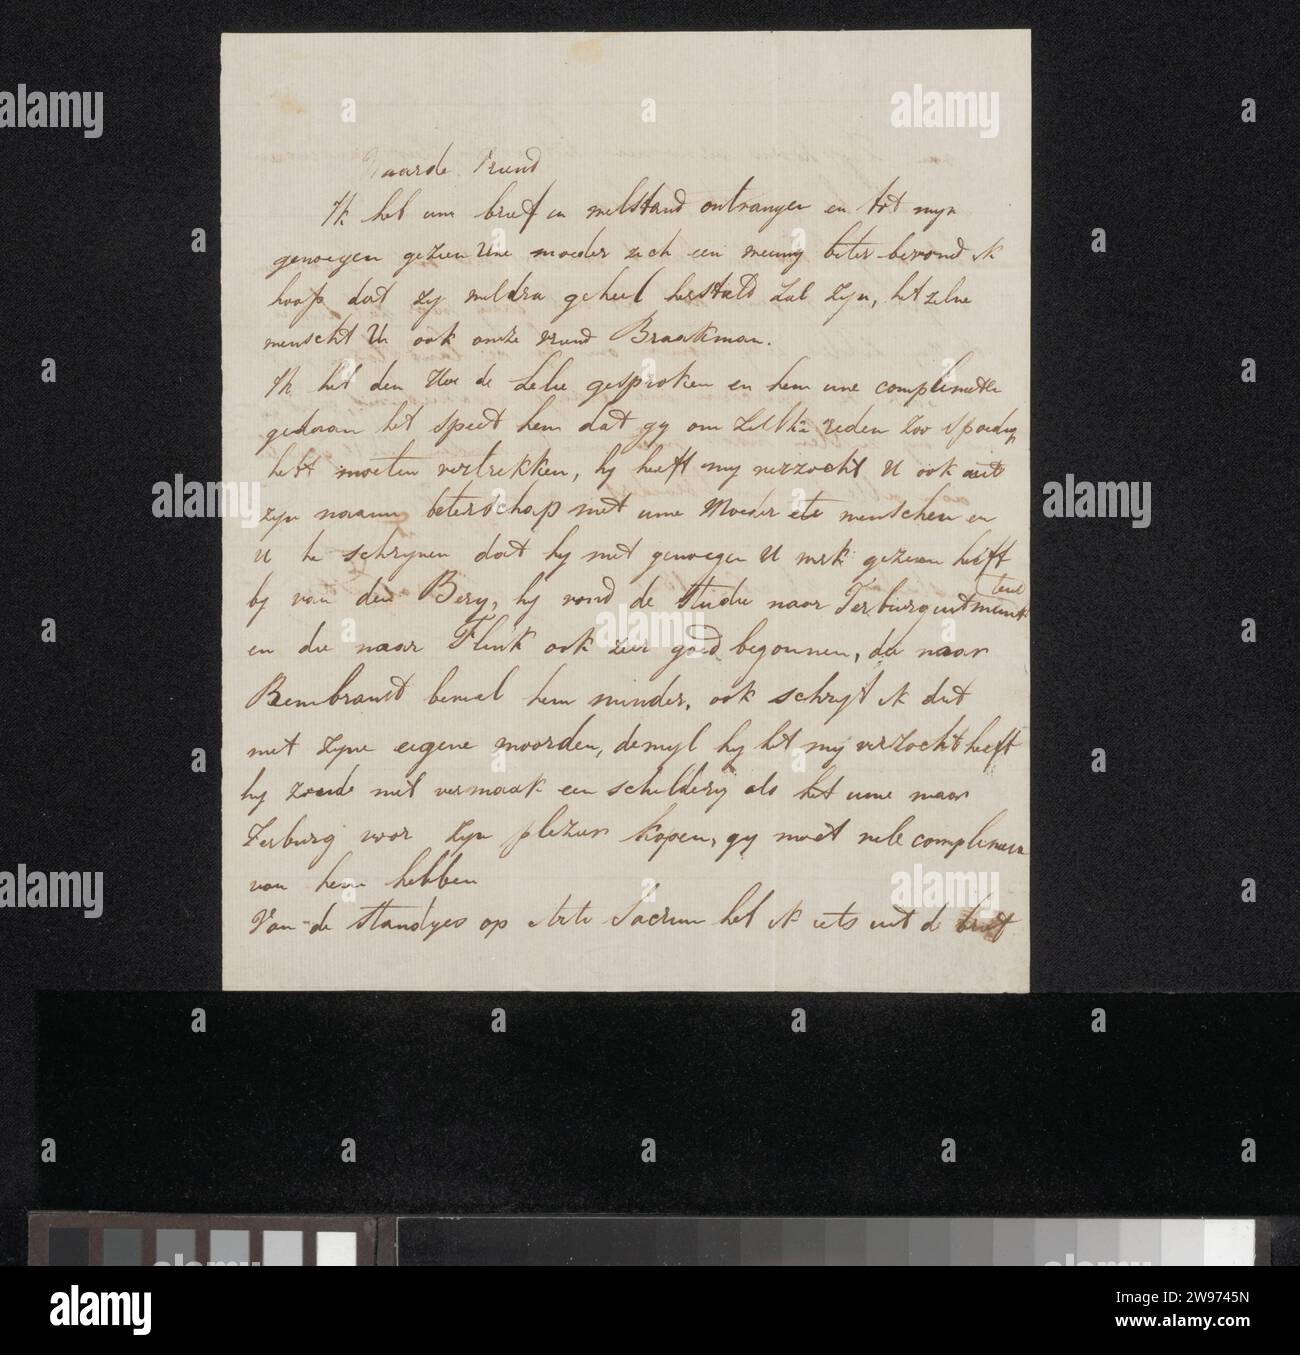 Waarde Vriend
Ik heb uw brief in welstand ontvangen en tot myn
genoegen gezien Uwe moeder zich een weinig beter bevond ik
hoop dat zy weldra geheel hersteld zal zyn, hetzelve
wenscht U ook onze vriend Braakman.
Ik heb den Heer de Lelie gesproken en hem uwe complimenten
gedaan het speet hem dat gy om zulke reden zoo spoedig
hebt moeten vertrekken, hy heeft my verzocht U ook uit
zyn naam beterschap met uwe Moeder te wenschen en
U te schryven dat hy met genoegen U werk gezien heeft
by van den Berg, hy vond de studie naar Terburg uitmuntend
en die naar Flink ook zeer goed begonnen, die naar
Rembrandt beviel hem minder, ook schryf ik dit
met zyne eigene woorden, dewyl hy het my verzocht heeft
hy zoude met vermaak een schildery als het uwe naar
Terburg voor zyn plezier kopen, gy moet vele complimenten
van hem hebben
Van de standjes op Arti Sacrum heb ik iets uit de brief
alamy
Image ID: 2W9745N
www.alamy.com